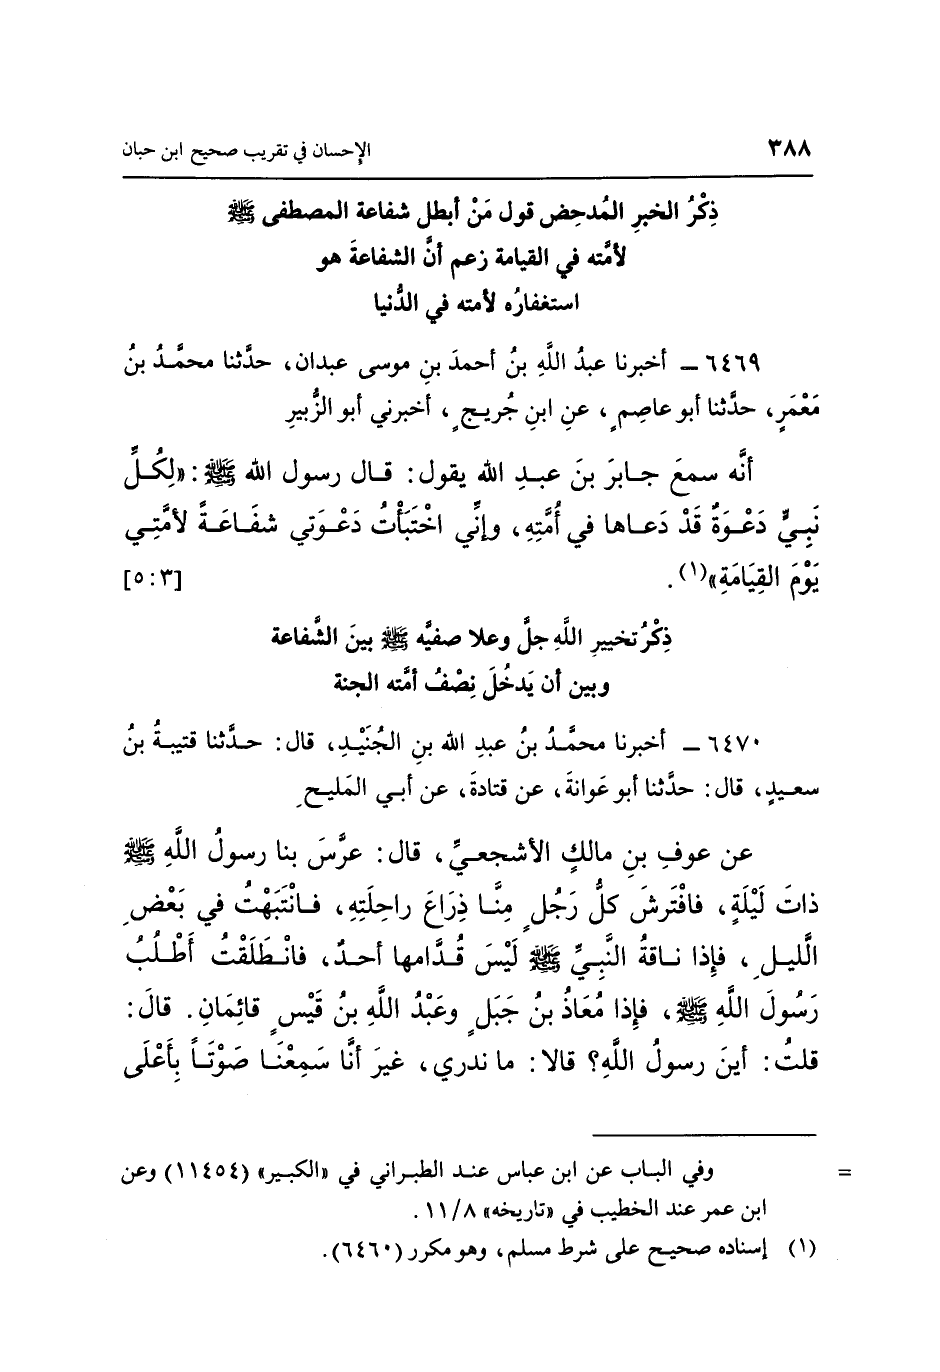 ٣٨٨
الإحسان في تقريب صحيح ابن حبان
ذِكْرُ الخبرِ المُدحِض قول مَنْ أبطل شفاعة المصطفى ﷺ
لأمَّته في القيامة زعم أنَّ الشفاعةَ هو
استغفارُه لأمته في الدُّنيا
٦٤٦٩ ــ أخبرنا عبدُ اللَّهِ بنُ أحمدَ بنِ موسى عبدان، حدَّثنا محمَّدُ بنُ
مَعْمَرٍ، حدَّثنا أبو عاصِمٍ، عنِ ابنِ جُريجٍ، أخبرني أبو الزُّبيرِ
أنَّه سمعَ جابرَ بنَ عبدِ الله يقول: قال رسول الله ﷺ: «لِكُلِّ
نَبِيٍّ دَعْوَةٌ قَدْ دَعاها في أُمَّتِهِ، وإنِّي اخْتَبَأْتُ دَعْوَتي شفَاعَةً لأمَّتِي
يَوْمَ القِيَامَةِ»(١). [٥:٣]
ذِكْرُ تخييرِ اللَّهِ جلَّ وعلا صفيَّه ﷺ بينَ الشَّفاعة
وبين أن يَدخُلَ نِصْفُ أمَّته الجنة
٦٤٧٠ ــ أخبرنا محمَّدُ بنُ عبدِ الله بنِ الجُنَيْدِ، قال: حدَّثنا قتيبةُ بنُ
سعيدٍ، قال: حدَّثنا أبو عَوانةَ، عن قتادةَ، عن أبي المَليحِ
عن عوفِ بنِ مالكٍ الأشجعيِّ، قال: عرَّسَ بنا رسولُ اللَّهِ ﷺ
ذاتَ لَيْلَةٍ، فافْتَرشَ كلُّ رَجُلٍ مِنَّا ذِرَاعَ راحِلَتِهِ، فانْتَبَهْتُ في بَعْضِ
الَّليلِ، فإذا ناقةُ النَّبِيِّ ﷺ لَيْسَ قُدَّامها أحدٌ، فانْطَلَقْتُ أَطْلُبُ
رَسُولَ اللَّهِ ﷺ، فإذا مُعَاذُ بنُ جَبَلٍ وعَبْدُ اللَّهِ بنُ قَيْسٍ قائِمَانِ. قالَ:
قلتُ: أينَ رسولُ اللَّهِ؟ قالا: ما ندري، غيرَ أنَّا سَمِعْنَا صَوْتَاً بِأَعْلَى
= وفي الباب عن ابن عباس عند الطبراني في «الكبير» (١١٤٥٤) وعن
ابن عمر عند الخطيب في «تاريخه» ١١/٨.
(١) إسناده صحيح على شرط مسلم، وهو مكرر (٦٤٦٠).